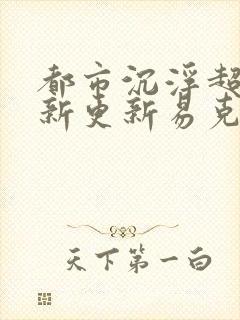 都市沉浮超
新更新易克
天下第一白